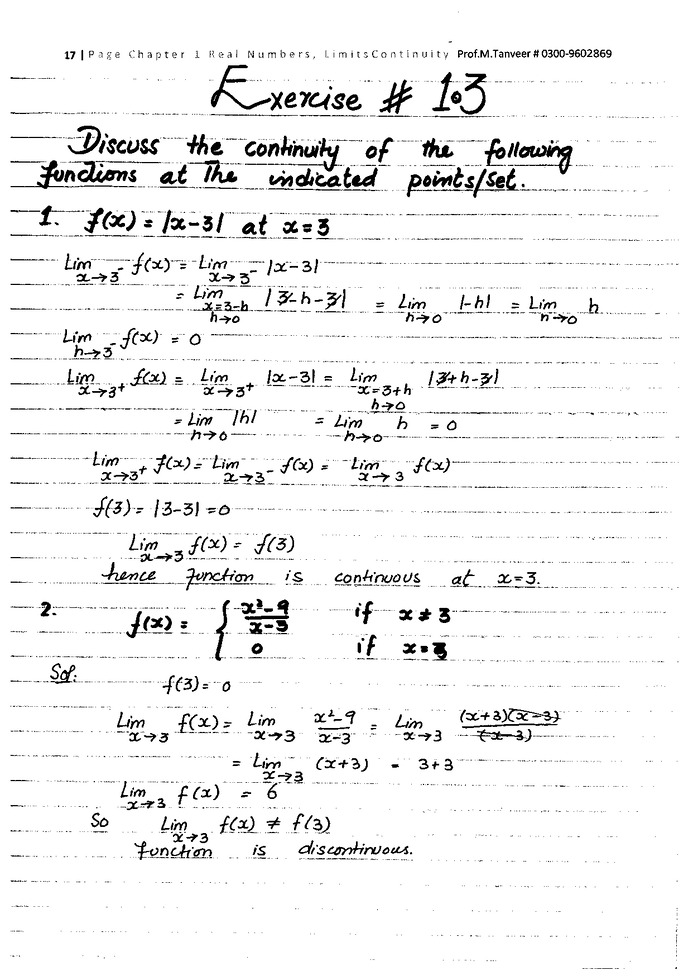 17 | Page Chapter 1 Real Numbers, LimitsContinuity Prof.M.Tanveer # 0300-9602869
Exercise # 1.3
Discuss the continuity of the following
functions at The indicated points/set.
1. f(x) = |x-3| at x = 3
Lim x→3⁻ f(x) = Lim x→3⁻ |x-3|
= Lim x=3-h h→0 |3-h-3| = Lim h→0 |-h| = Lim h→0 h
Lim h→3⁻ f(x) = 0
Lim x→3⁺ f(x) = Lim x→3⁺ |x-3| = Lim x=3+h h→0 |3+h-3|
= Lim h→0 |h| = Lim h→0 h = 0
Lim x→3⁺ f(x) = Lim x→3⁻ f(x) = Lim x→3 f(x)
f(3) = |3-3| = 0
Lim x→3 f(x) = f(3)
hence function is continuous at x=3.
2. f(x) = { x²-9 / x-3 if x ≠ 3
0 if x = 3
Sol:
f(3) = 0
Lim x→3 f(x) = Lim x→3 x²-9 / x-3 = Lim x→3 (x+3)(x-3) / (x-3)
= Lim x→3 (x+3) = 3+3
Lim x→3 f(x) = 6
So Lim x→3 f(x) ≠ f(3)
function is discontinuous.